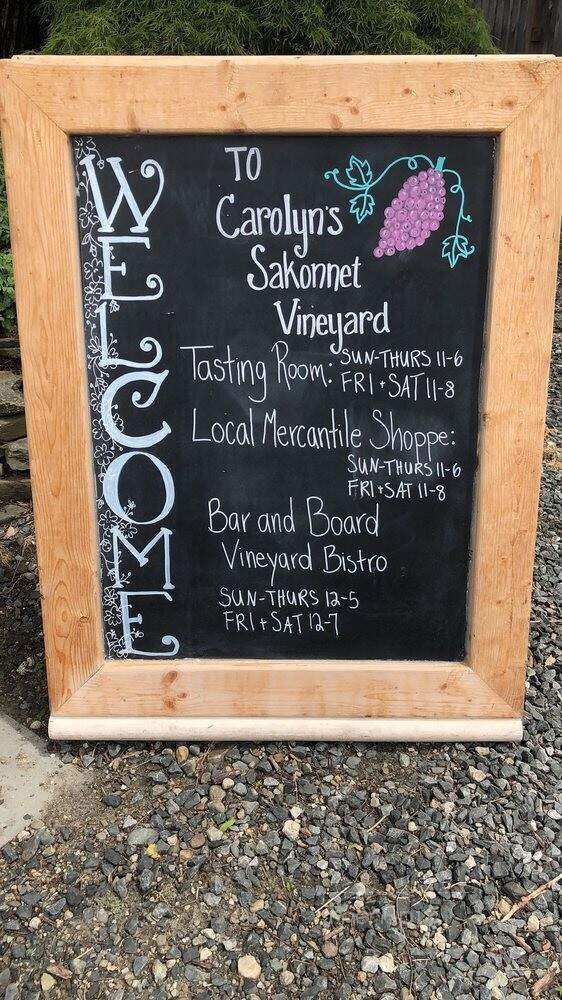 WELCOME
TO
Carolyn's
Sakonnet
Vineyard
Tasting Room: SUN-THURS 11-6
FRI + SAT 11-8
Local Mercantile Shoppe:
SUN-THURS 11-6
FRI + SAT 11-8
Bar and Board
Vineyard Bistro
SUN-THURS 12-5
FRI + SAT 12-7